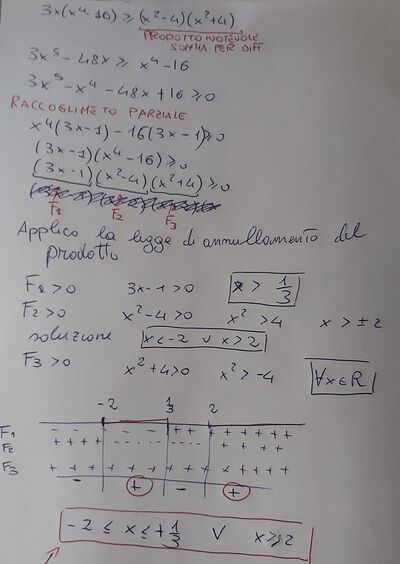 3x(x⁴-16) ≥ (x²-4)(x²+4)
PRODOTTO NOTEVOLE
SOMMA PER DIFF
3x⁵ - 48x ≥ x⁴-16
3x⁵ - x⁴ - 48x + 16 ≥ 0
RACCOGLIMETO PARZIALE
x⁴(3x-1) - 16(3x-1) ≥ 0
(3x-1)(x⁴-16) ≥ 0
(3x-1)(x²-4)(x²+4) ≥ 0
F1 F2 F3
Applico la legge di annullamento del
prodotto
F1 > 0 3x-1 > 0 x > 1/3
F2 > 0 x²-4 > 0 x² > 4 x > ±2
soluzione x < -2 ∨ x > 2
F3 > 0 x²+4 > 0 x² > -4 ∀x∈R
-2 1/3 2
F1 - - - - - - + + + + + + + +
F2 + + + + - - - - - - - + + + +
F3 + + + + + + + + + + + + + +
- + - +
-2 ≤ x ≤ + 1/3 ∨ x ≥ 2